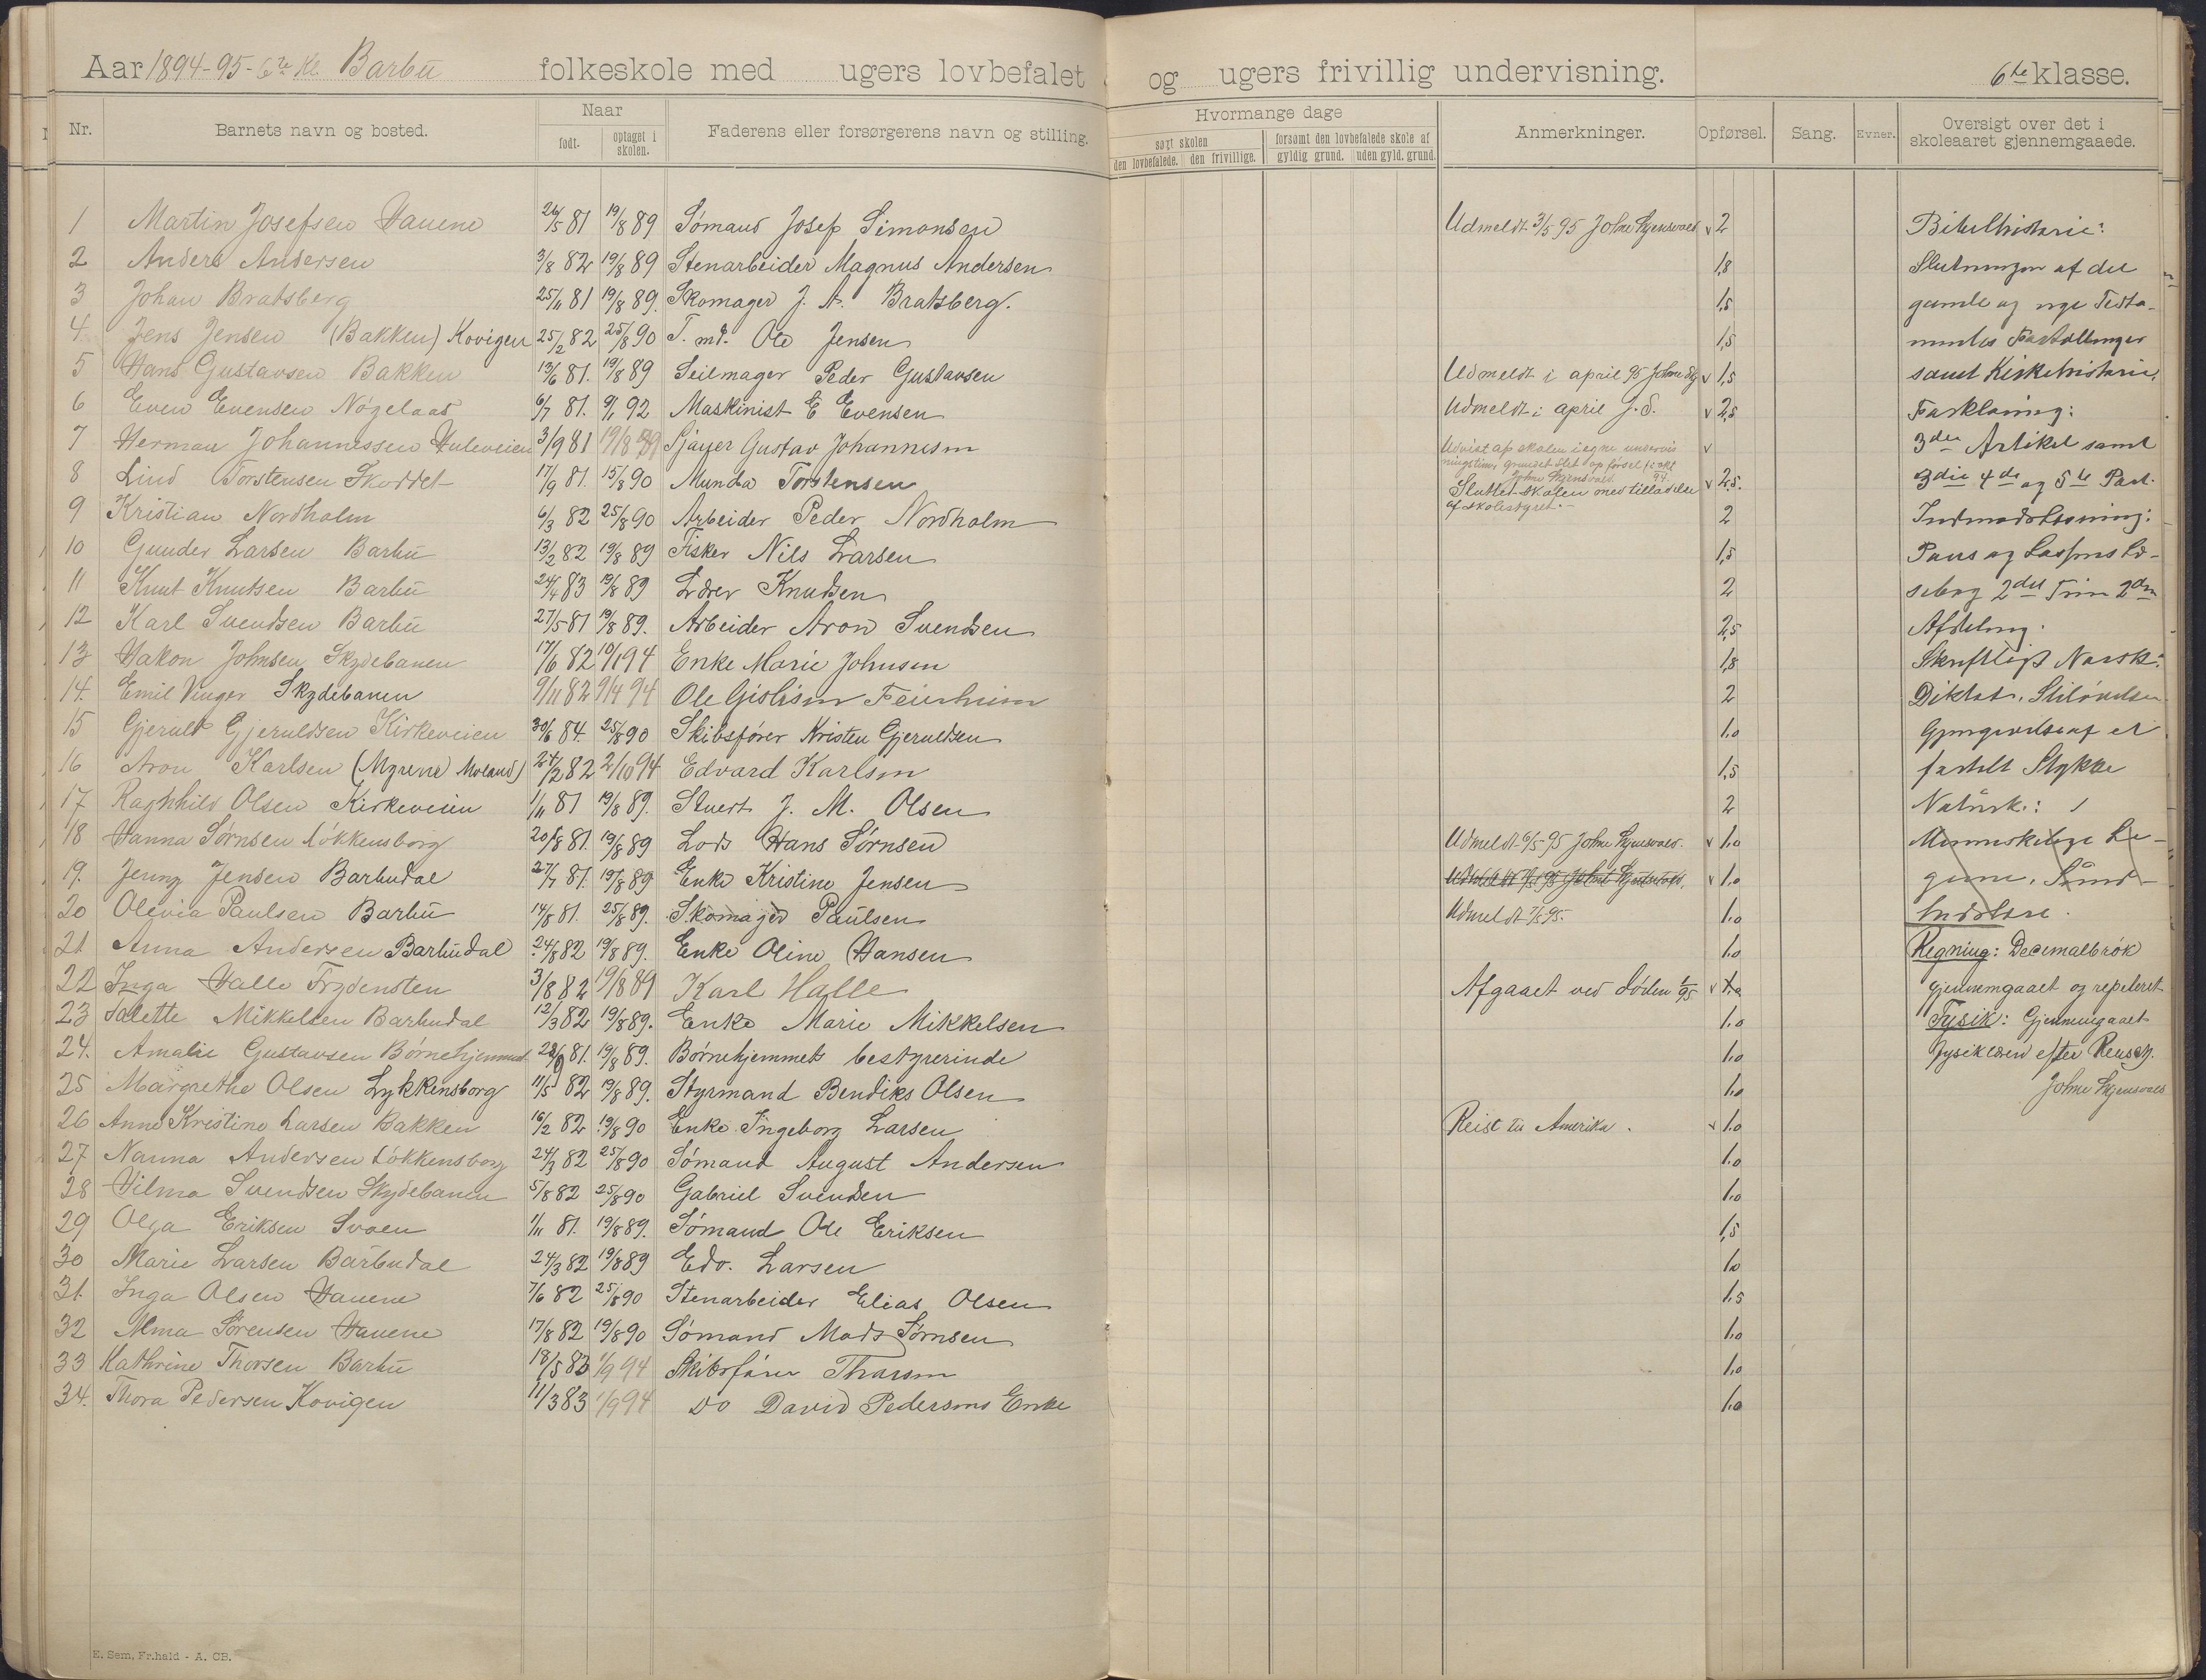 Aar 1894-95- 6te Kl. Barbu folkeskole med ugers lovbefalet og ugers frivillig undervisning. 6te klasse.
Nr. Barnets navn og bosted. Naar født. optaget i skolen. Faderens eller forsørgerens navn og stilling.
Hvormange dage søgt skolen den lovbefalede. den frivillige. forsømt den lovbefalede skole af gyldig grund. uden gyld. grund. Anmerkninger. Opførsel. Sang. Evner. Oversigt over det i skoleaaret gjennemgaaede.
1 Martin Josefsen Hauene 26/5 81 19/8 89 Sømand Josef Simonsen Udmeldt 3/5 95 Johne Skjensvold v 2 Bibelhistorie:
2 Anders Andersen 3/8 82 19/8 89 Stenarbeider Magnus Andersen 1,8 Slutningen af det
3 Johan Bratsberg 25/11 81 19/8 89. Skomager J. A. Bratsberg. 1,5 gamle og nye Testa-
4. Jens Jensen (Bakken) Kovigen 25/2 82 25/8 90 T. md. Ole Jensen 1,5 mentes Fortællinger
5 Hans Gustavsen Bakken 13/6 81. 19/8 89 Seilmager Peder Gustavsen Udmeldt i april 95 v 1,5 samt Kirkehistorie.
6 Even Evensen Nøgelaas 6/7 81. 9/1 92 Maskinist E Evensen Udmeldt i april J. S. v 2,5 Forklaring:
7 Herman Johannessen Huleveien 3/9 81 19/8 89 Gustav Johannesen v 3die Artikel samt
8 Lind Torstensen Skoddet 17/9 81. 15/8 90 Munda Torstensen Sluttet skolen med tilladelse af skolestyret.- v 2,5. 3die 4de og 5te Part.
9 Kristian Nordholm 6/3 82 25/8 90 Arbeider Peder Nordholm 2
10 Gunder Larsen Barbu 13/2 82 19/8 89 Fisker Nils Larsen 1,5 Paus og Lassens Læ-
11 Knut Knutsen Barbu 24/4 83 19/8 89 Knudsen 2 sebog 2det Trin 2den
12 Karl Svendsen Barbu 27/5 81 19/8 89. Arbeider Aron Svendsen 2,5 Afdeling.
13 Hakon Johnsen Skydebanen 17/6 82 10/1 94 Enke Marie Johnsen 1,8 Skriftligt Norsk:
14. Emil Unger Skydebanen 9/11 82 9/4 94 Ole Gislesen Feierheim 2 Diktat, Stiløvelser
15 Gjeruld Gjeruldsen Kirkeveien 30/6 84. 25/8 90 Skibsfører Kristen Gjeruldsen 1.0 Gjengivelse af et
16 Aron Karlsen (Myrene Moland) 24/2 82 2/10 94 Edvard Karlsen 1,5 fortalt Stykke
17 Raghhild Olsen Kirkeveien 1/11 81 19/8 89. Stuert J. M. Olsen 2 Natursk.:
18 Hanna Sørnsen Løkkensborg 20/8 81. 19/8 89 Lods Hans Sørnsen Udmeldt 6/5-95 Johne Skjensvold. v 1.0 Menneskelige Le-
19. Jenny Jensen Barbudal 27/7 81. 19/8 89 Enke Kristine Jensen v 1.0 geme, Sund-
20 Olevia Paulsen Barbu 14/8 81. 25/8 89. Skomager Paulsen Udmeldt 7/5 95. 1.0 hedslære.
21. Anna Andersen Barbudal 24/8 82 19/8 89. Enke Oline Hansen 1.0 Regning: Decemalbrøk
22 Inga Halle Frydensten 3/8 82 19/8 89 Karl Halle Afgaaet ved døden v 1.0 gjennemgaaet og repeteret
23 Talette Mikkelsen Barbudal 12/3 82 19/8 89. Enke Marie Mikkelsen 1.0 Fysik: Gjennemgaaet
24. Amalie Gustavsen Børnehjemmet 19/8 89. Børnehjemmets bestyrerinde 1.0 fysikken efter Reusch.
25 Margrethe Olsen Lykkensborg 11/5 82 19/8 89. Styrmand Bendiks Olsen 1.0 Johne Skjensvold
26 Anne Kristine Larsen Bakken 16/2 82 19/8 90 Enke Ingeborg Larsen Reist til Amerika. v 1.0
27 Nanna Andersen Løkkensborg 24/3 82 25/8 90 Sømand August Andersen 1.0
28 Hilma Svendsen Skydebanen 5/8 82 25/8 90 Gabriel Svendsen 1.0
29 Olga Eriksen Svoen 1/11 81. 19/8 89. Sømand Ole Eriksen 1,5
30 Marie Larsen Barbudal 24/3 82 19/8 89 Edv. Larsen 1.0
31. Inga Olsen Hauene 7/6 82 25/8 90 Stenarbeider Elias Olsen 1.5
32 Alma Sørensen Hauene 17/8 82 19/8 90 Sømand Mads Sørnsen 1.0
33 Kathrine Thorsen Barbu 18/5 83 1/9 94 Skibsfører Thorsen 1.0
34. Thora Pedersen Kovigen 11/3 83 1/9 94 Do David Pedersens Enke 1.0
E. Sem, Fr.hald - A. CB.